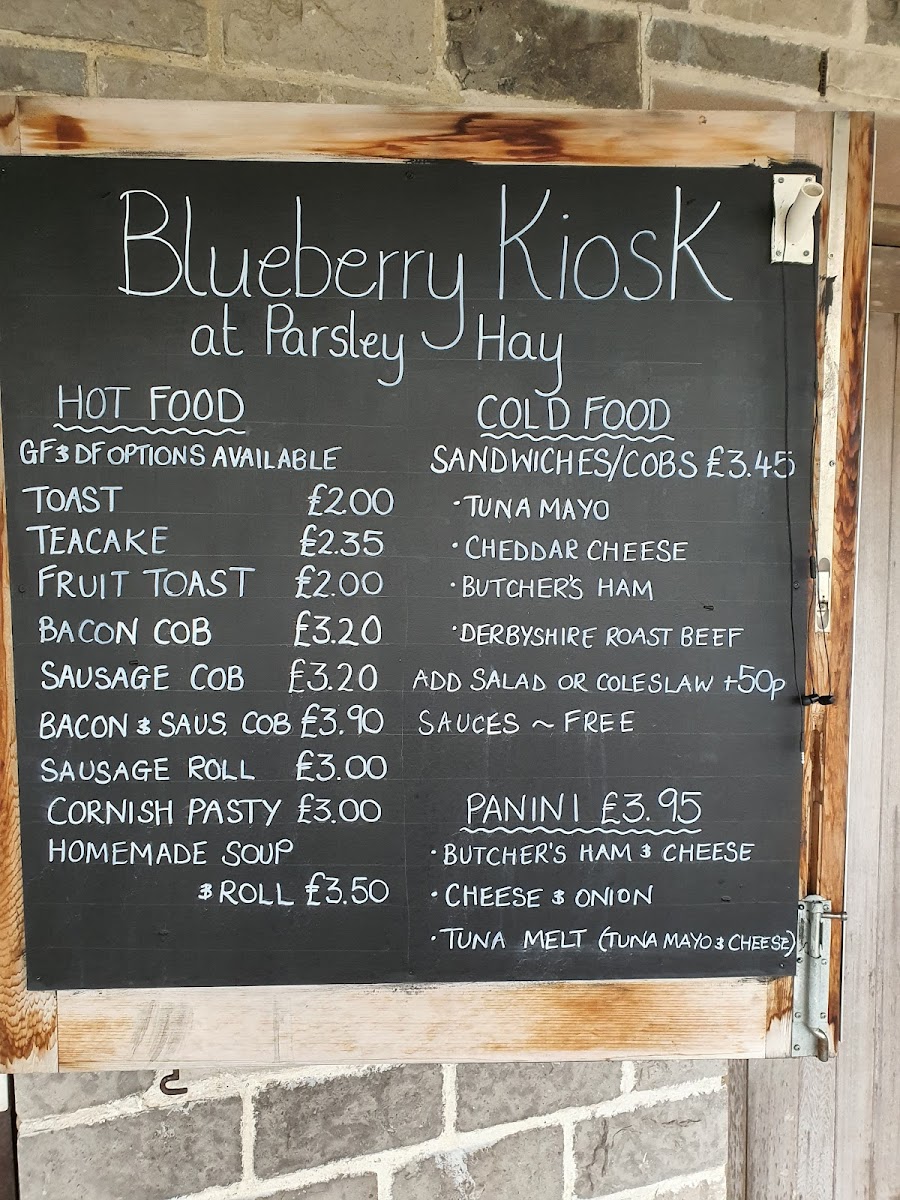 Blueberry Kiosk
at Parsley Hay
HOT FOOD
GF & DF OPTIONS AVAILABLE
TOAST £2.00
TEACAKE £2.35
FRUIT TOAST £2.00
BACON COB £3.20
SAUSAGE COB £3.20
BACON & SAUS. COB £3.90
SAUSAGE ROLL £3.00
CORNISH PASTY £3.00
HOMEMADE SOUP
& ROLL £3.50
COLD FOOD
SANDWICHES/COBS £3.45
·TUNA MAYO
·CHEDDAR CHEESE
·BUTCHER'S HAM
·DERBYSHIRE ROAST BEEF
ADD SALAD OR COLESLAW +50p
SAUCES ~ FREE
PANINI £3.95
·BUTCHER'S HAM & CHEESE
·CHEESE & ONION
·TUNA MELT (TUNA MAYO & CHEESE)